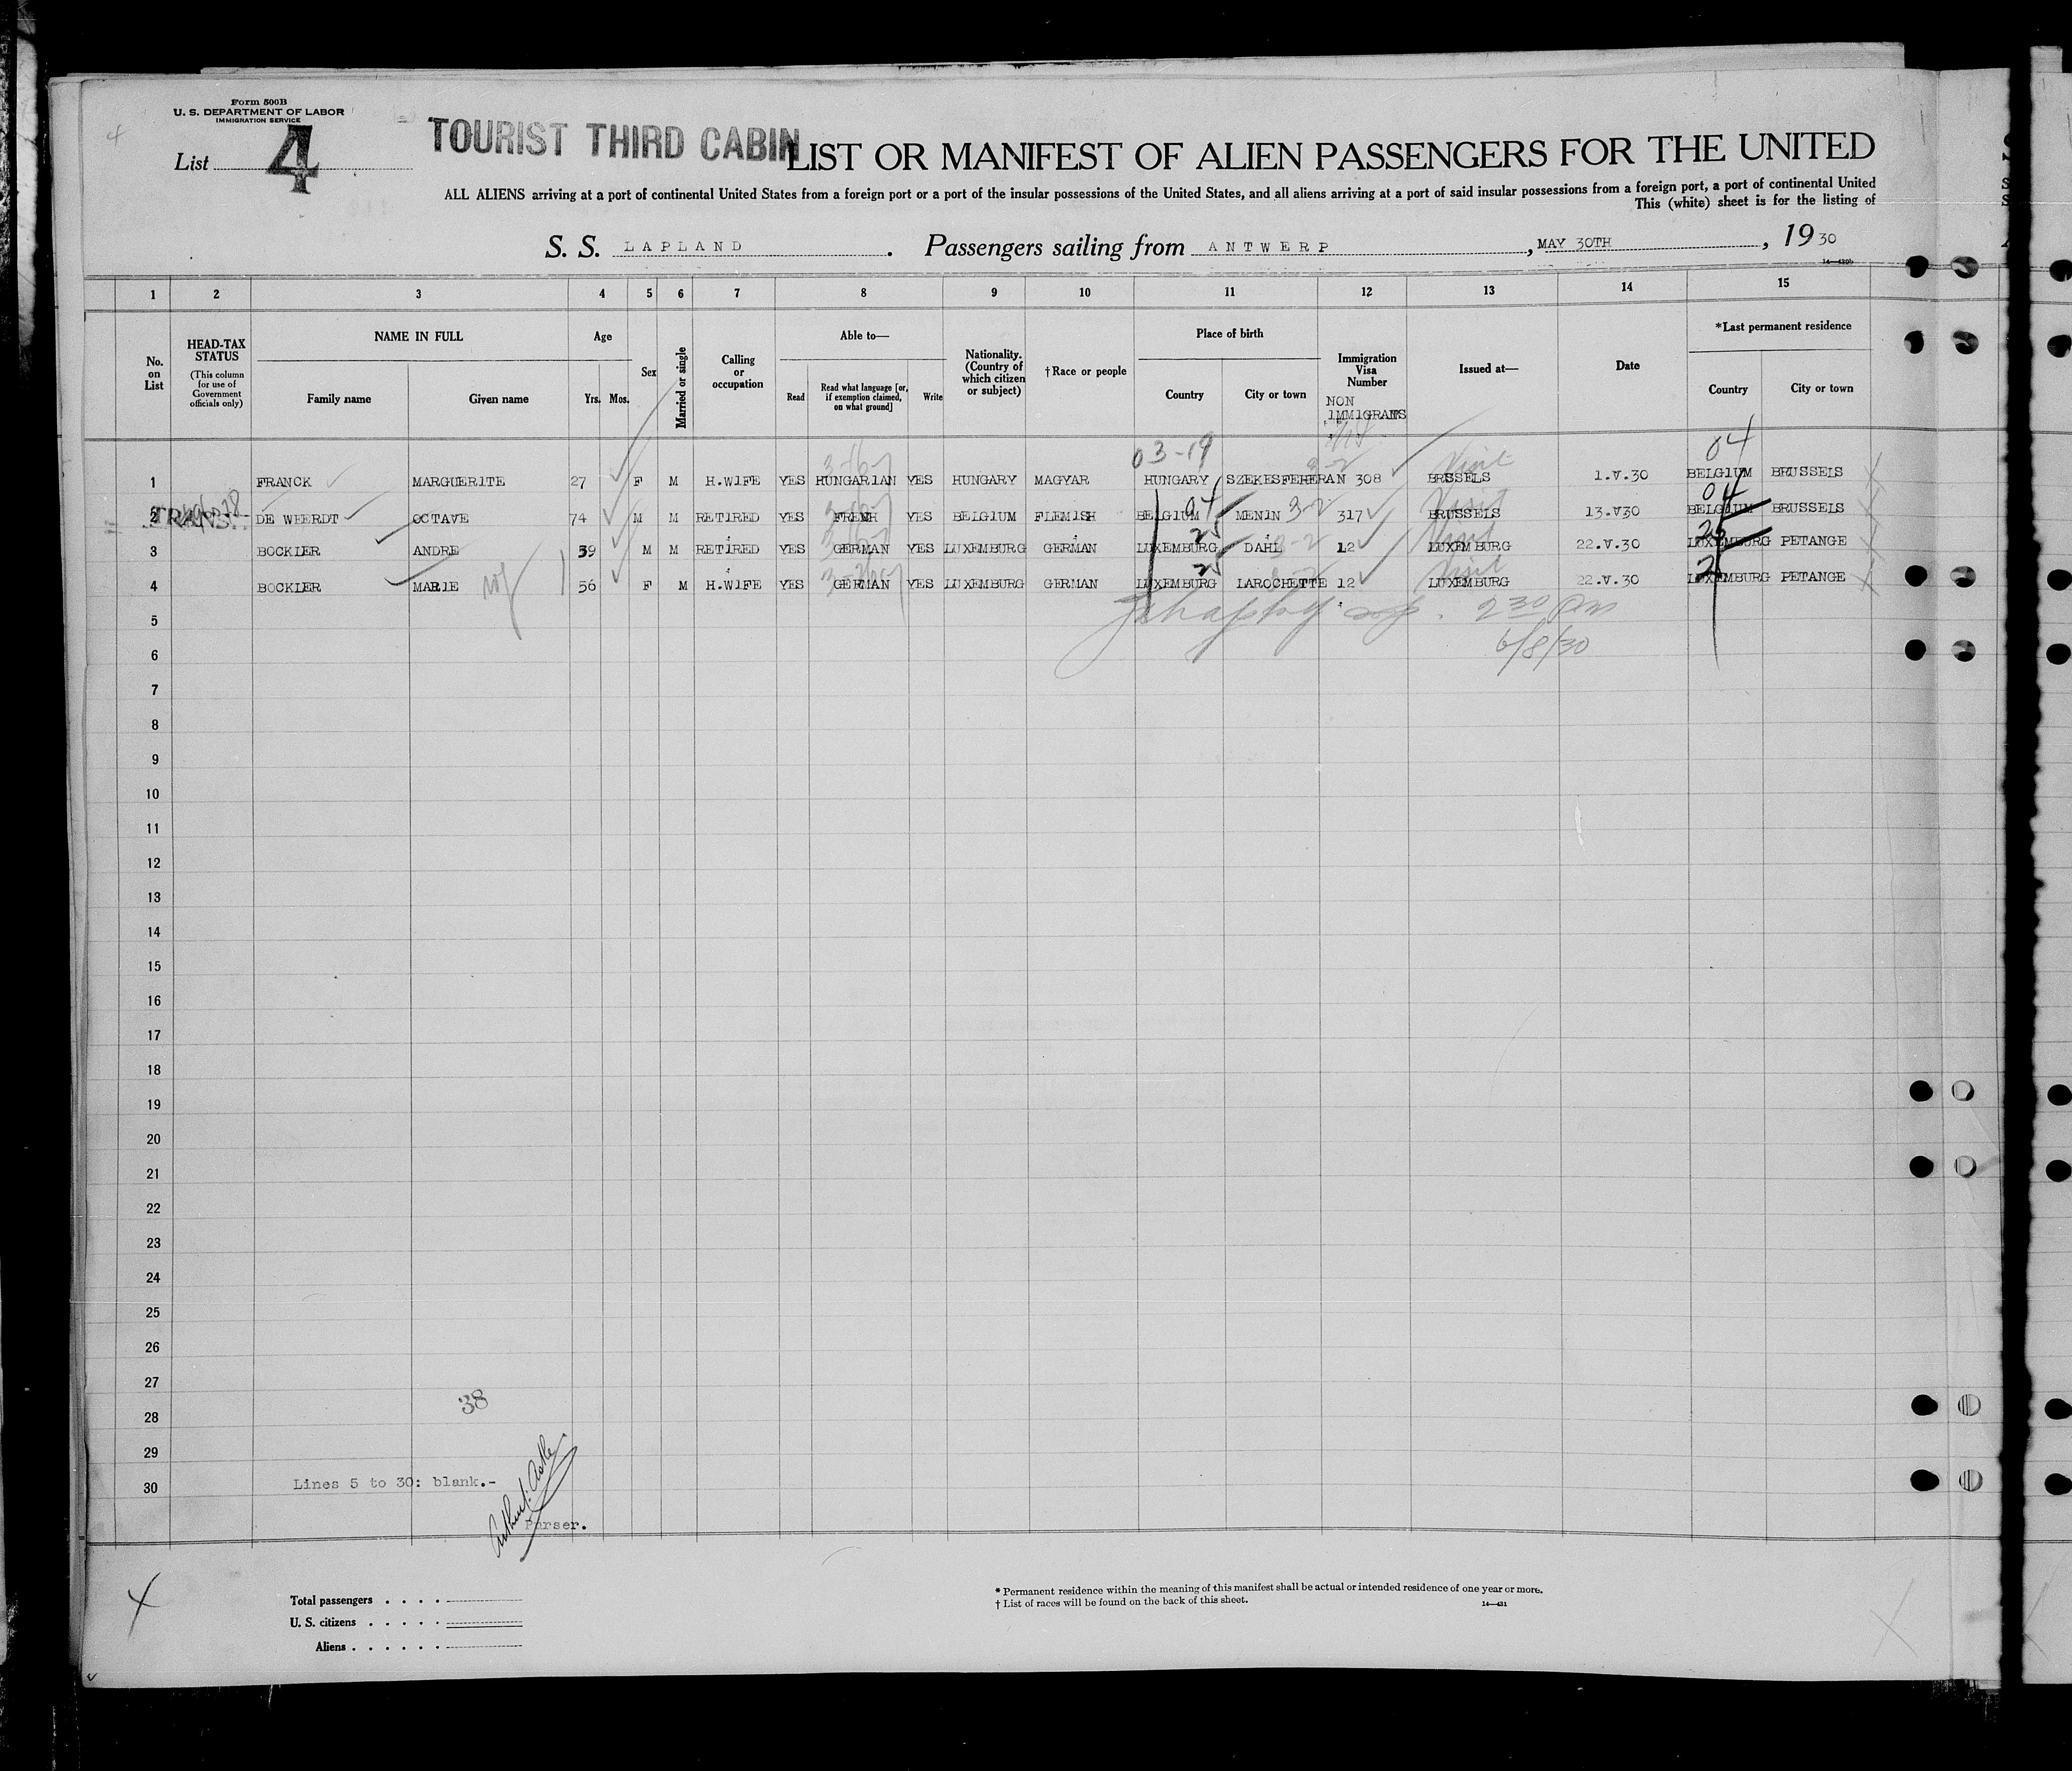 Form 500B
U. S. DEPARTMENT OF LABOR
IMMIGRATION SERVICE
4
List 4
TOURIST THIRD CABIN
LIST OR MANIFEST OF ALIEN PASSENGERS FOR THE UNITED
ALL ALIENS arriving at a port of continental United States from a foreign port or a port of the insular possessions of the United States, and all aliens arriving at a port of said insular possessions from a foreign port, a port of continental United
This (white) sheet is for the listing of
S. S. LAPLAND. Passengers sailing from ANTWERP, MAY 30TH, 19 30
1 2 3 4 5 6 7 8 9 10 11 12 13 14 15
No. on List
HEAD-TAX STATUS
(This column for use of Government officials only)
NAME IN FULL
Family name Given name
Age
Yrs. Mos.
Sex
Married or single
Calling or occupation
Able to—
Read Read what language [or, if exemption claimed, on what ground] Write
Nationality. (Country of which citizen or subject)
† Race or people
Place of birth
Country City or town
Immigration Visa Number
NON IMMIGRANTS
Issued at—
Date
*Last permanent residence
Country City or town
03-19 04
1 FRANCK MARGUERITE 27 F M H.WIFE YES HUNGARIAN YES HUNGARY MAGYAR HUNGARY SZEKESFEHERAN 308 BRSSELS Visit 1.V.30 BELGIUM BRUSSELS
2 TRANS. DE WEERDT OCTAVE 74 M M RETIRED YES FREMH YES BELGIUM FLEMISH BELGIUM 04 MENIN 3-2 317 BRUSSELS Visit 13.V30 BELGIUM 04 BRUSSELS
3 BOCKLER ANDRE 59 M M RETIRED YES GERMAN YES LUXEMBURG GERMAN LUXEMBURG 25 DAHL 3-2 12 LUXEMBURG Visit 22.V.30 LUXEMBURG 25 PETANGE
4 BOCKLER MARIE 56 F M H.WIFE YES GERMAN YES LUXEMBURG GERMAN LUXEMBURG 25 LAROCHETTE 12 LUXEMBURG Visit 22.V.30 LUXEMBURG PETANGE
5 2 30 pm
6 6/8/30
7
8
9
10
11
12
13
14
15
16
17
18
19
20
21
22
23
24
25
26
27
38
28
29
30 Lines 5 to 30: blank.-
Purser.
Total passengers
U. S. citizens
Aliens
* Permanent residence within the meaning of this manifest shall be actual or intended residence of one year or more.
† List of races will be found on the back of this sheet.
14—431